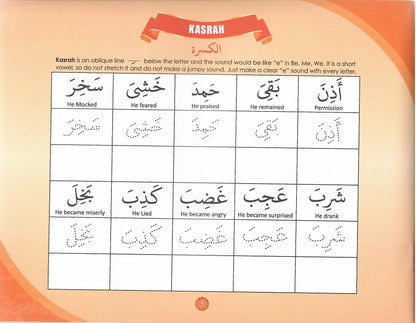 KASRAH
الكسرة
Kasrah is an oblique line ـِ below the letter and the sound would be like "e" in Be, Me, We. It is a short
vowel, so do not stretch it and do not make a jumpy sound. Just make a clear "e" sound with every letter.
سَخِرَ خَشِىَ حَمِدَ بَقِىَ أَذِنَ
He Mocked He feared He praised He remained Permission
سَخِرَ خَشِىَ حَمِدَ بَقِىَ أَذِنَ
بَخِلَ كَذِبَ غَضِبَ عَجِبَ شَرِبَ
He became miserly He Lied He became angry He became surprised He drank
بَخِلَ كَذِبَ غَضِبَ عَجِبَ شَرِبَ